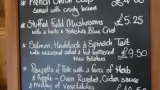 French Onion Soup
served with crusty bread
£4.50
Stuffed Field Mushrooms
with a herb & Yorkshire Blue Crust
£5.25
Salmon, Haddock & Spinach Tart
with seasonal salad & hot buttered
New Potatoes
£9.50
of Pork with a
& Apple - Oven Roasted, Cider sauce
medley of Vegetables